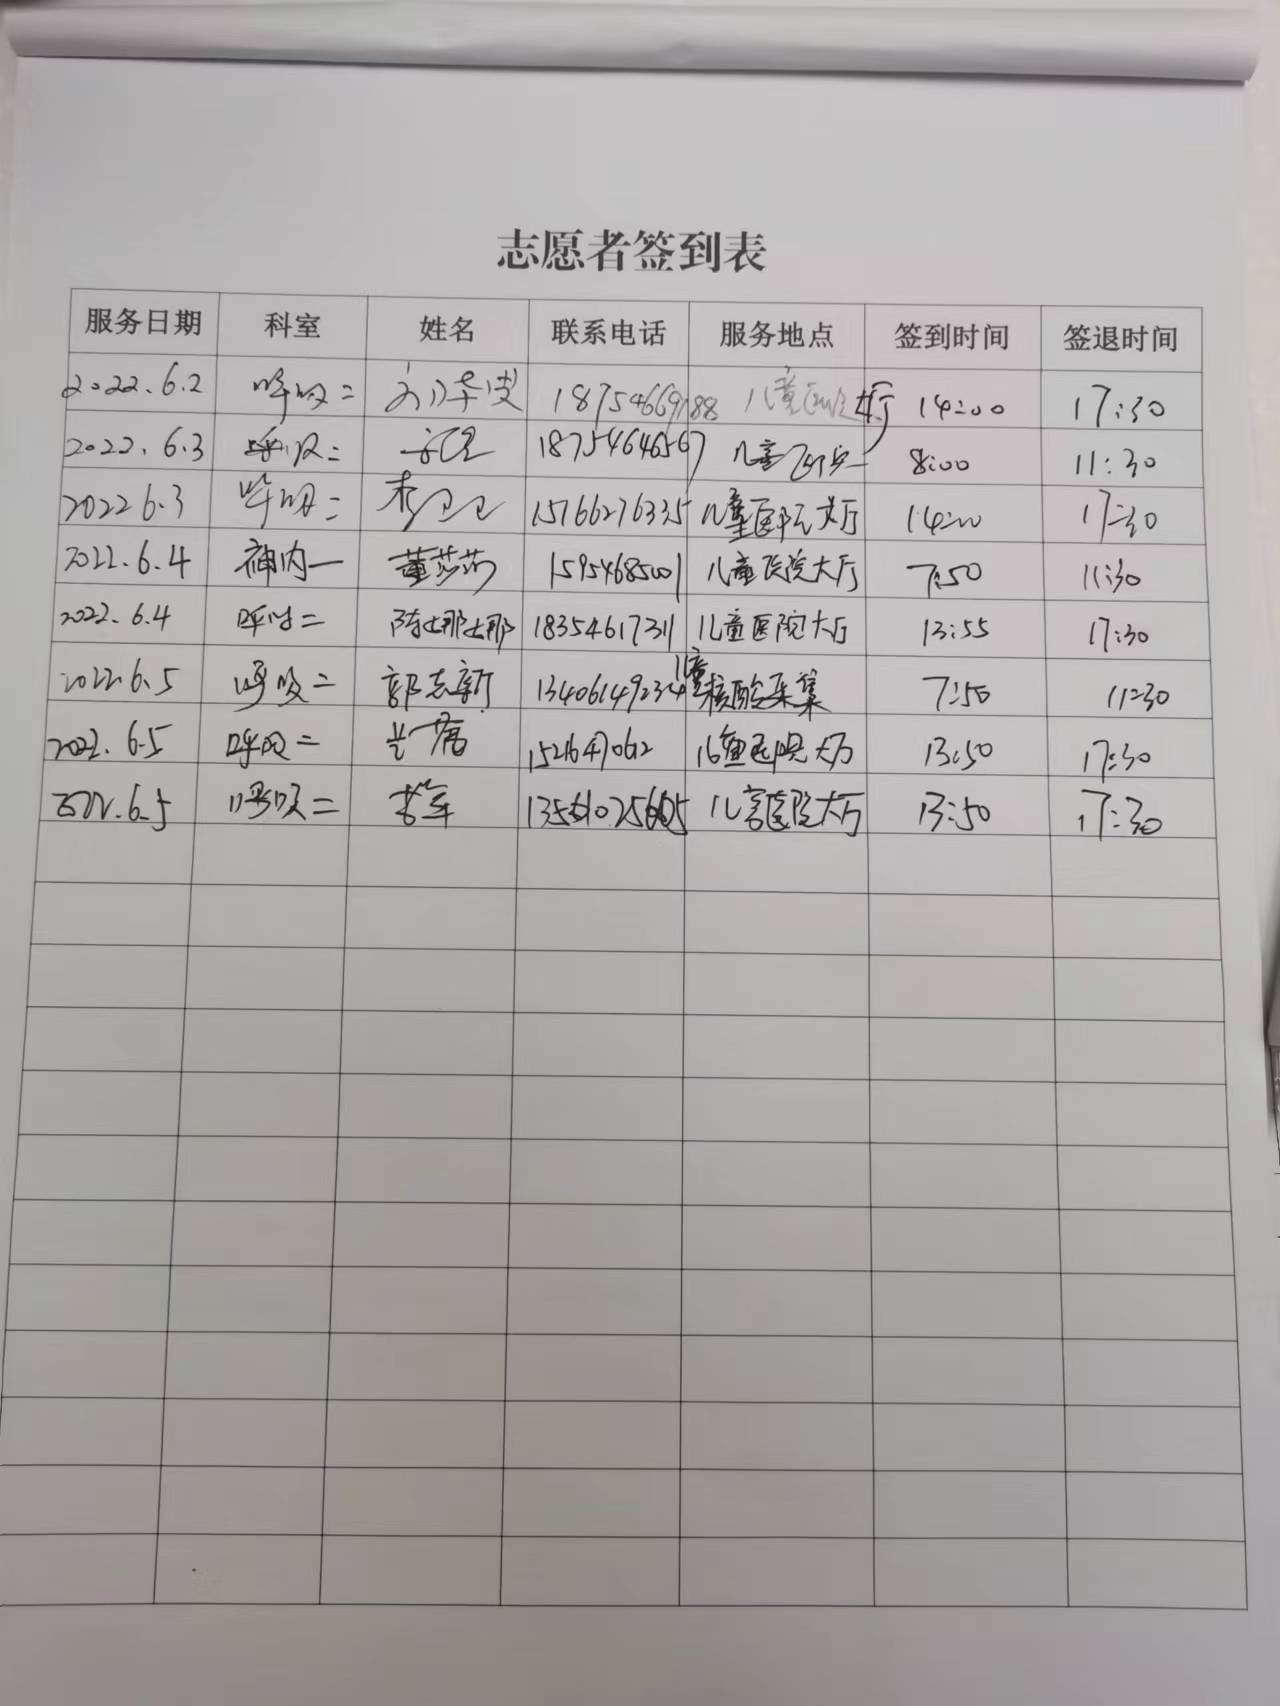 志愿者签到表
服务日期 科室 姓名 联系电话 服务地点 签到时间 签退时间
2022.6.2 呼吸二 18754669188 儿童医院大厅 14:00 17:30
2022.6.3 呼吸二 18754646567 儿童医院 8:00 11:30
2022 6.3 呼吸二 15766276335 儿童医院大厅 14:00 17:30
2022.6.4 神内一 董莎莎 15954685001 儿童医院大厅 7:50 11:30
2022.6.4 呼吸二 陈娜娜 18354617311 儿童医院大厅 13:55 17:30
2022.6.5 呼吸二 郭志新 13406149234 儿童核酸采集 7:50 11:30
2022.6.5 呼吸二 儿童医院大厅 13:50 17:30
2022.6.5 呼吸二 儿童医院大厅 13:50 17:30